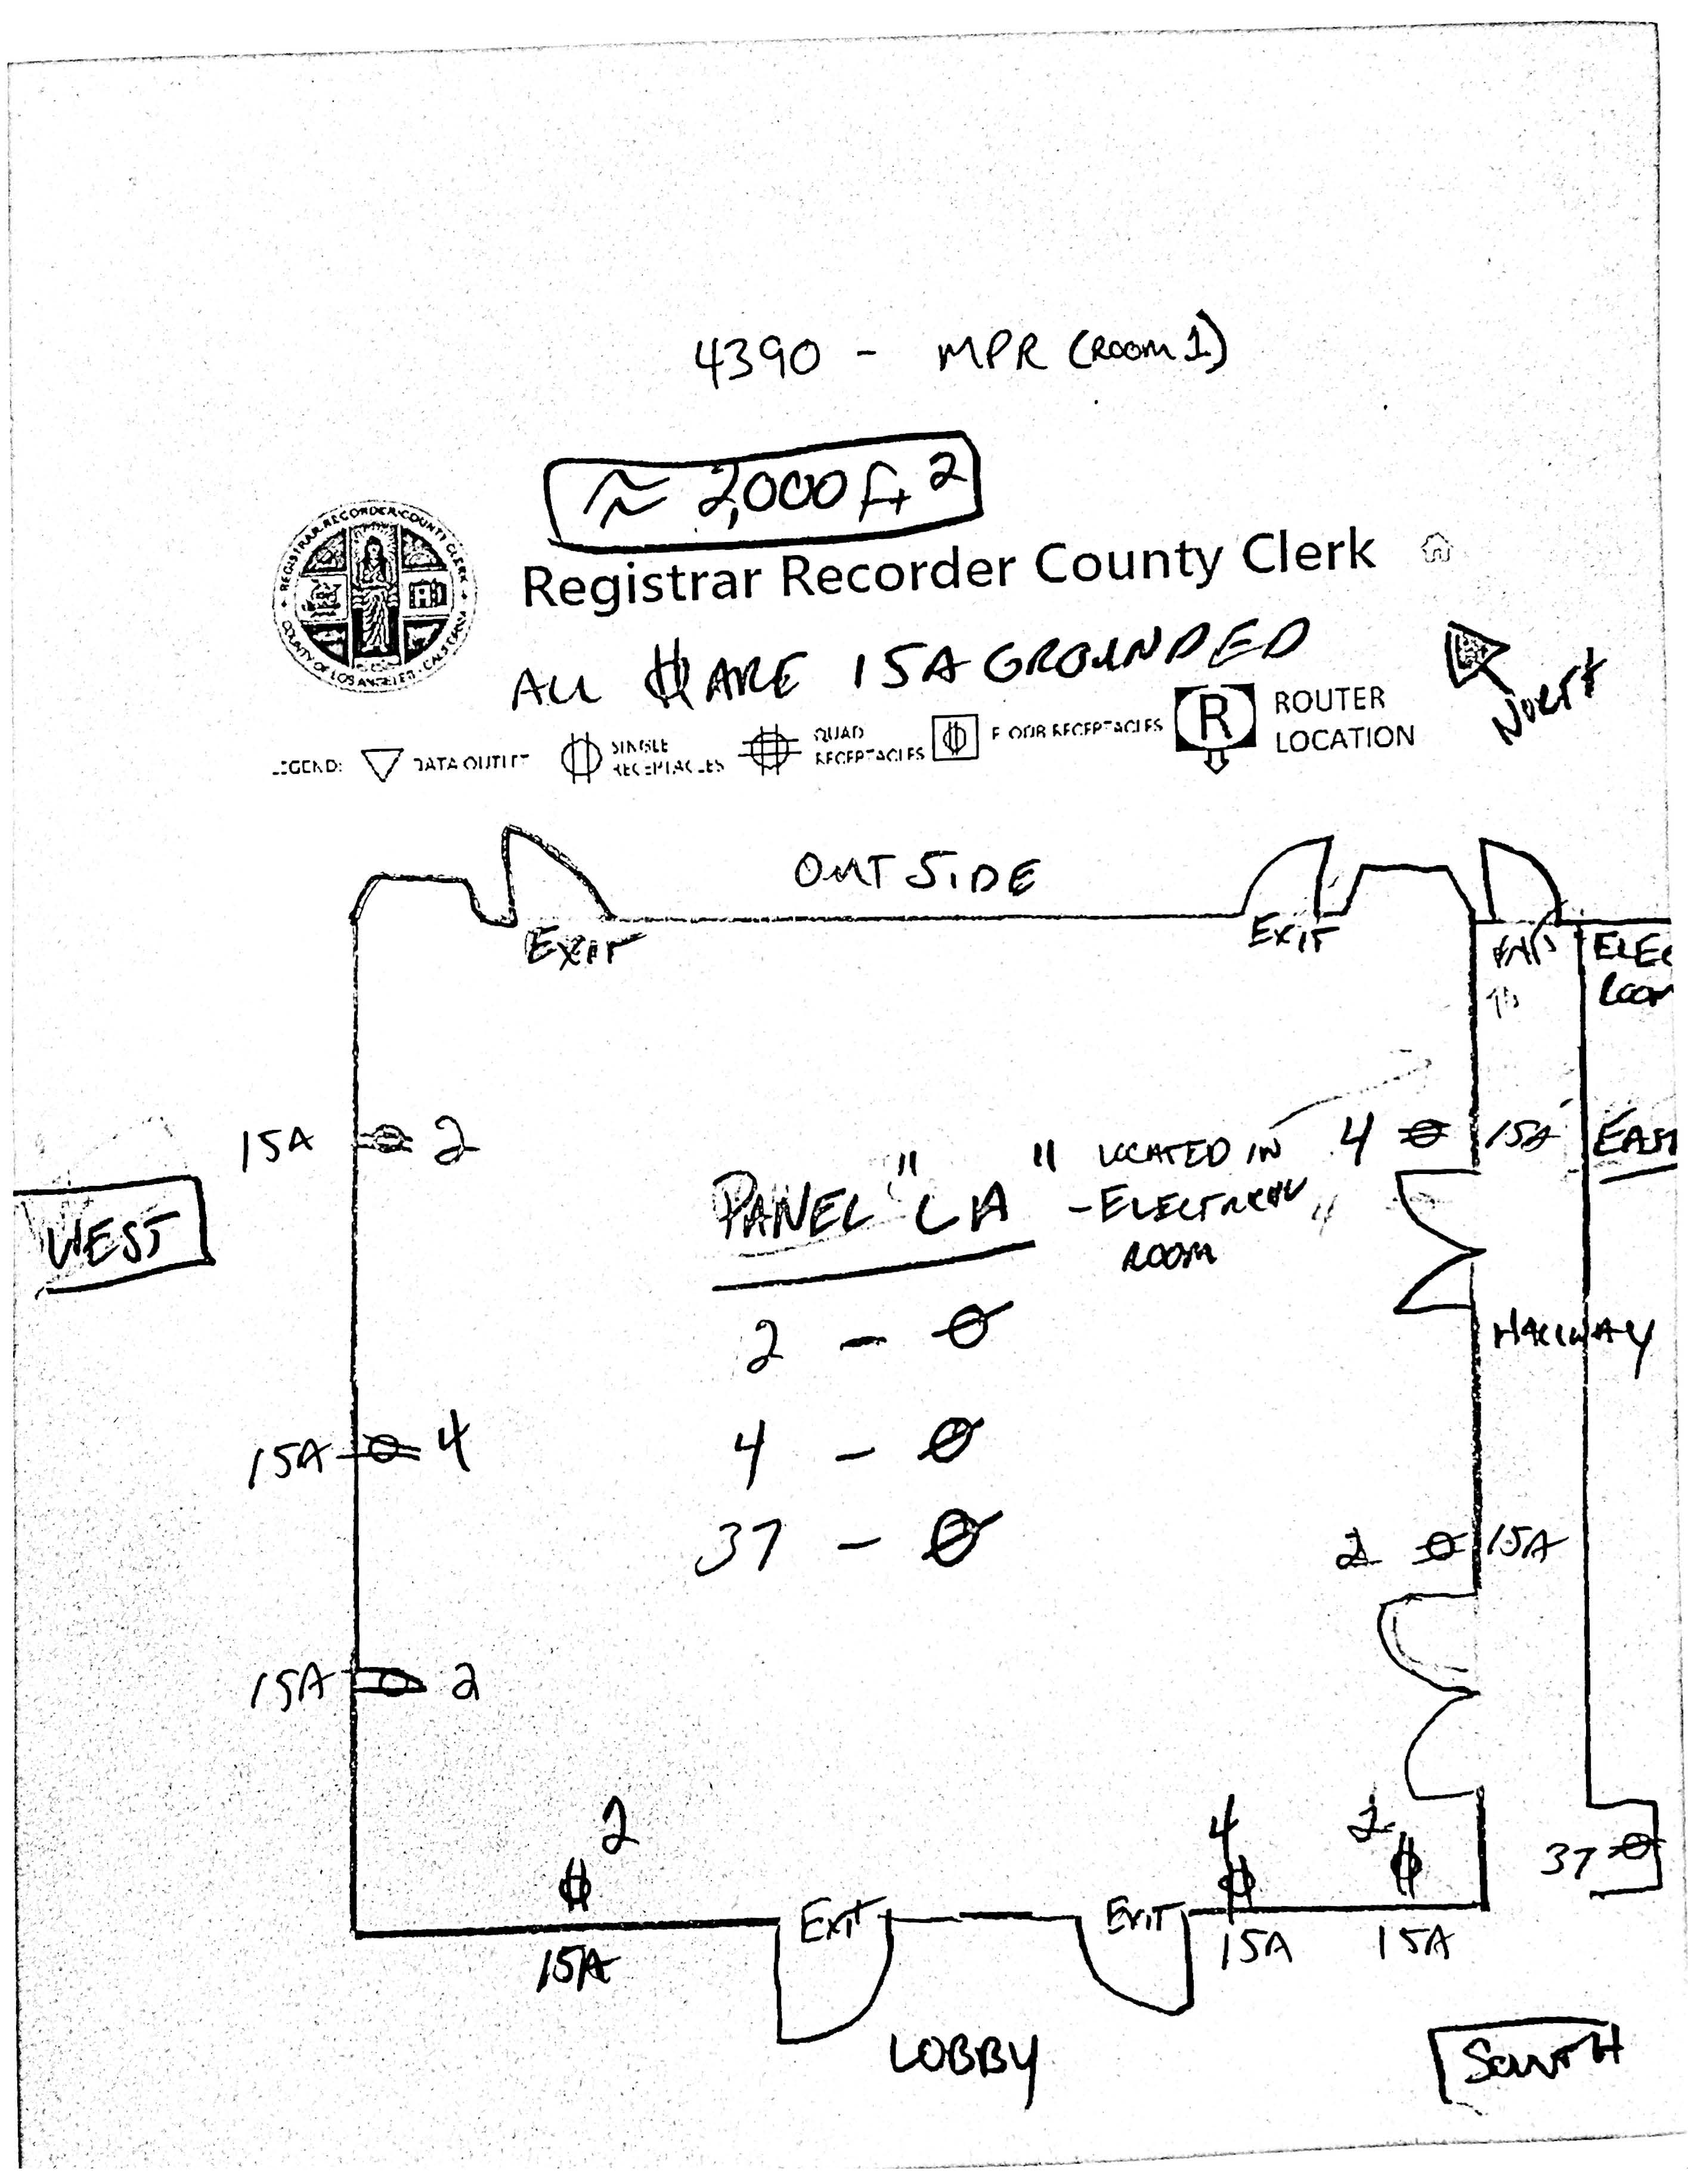 4390 - MPR (ROOM 1)
≈ 2,000 ft²
REGISTRAR-RECORDER/COUNTY CLERK
COUNTY OF LOS ANGELES, CALIFORNIA
Registrar Recorder County Clerk
ALL ARE 15A GROUNDED
North
LEGEND: DATA OUTLET SINGLE RECEPTACLES QUAD RECEPTACLES FLOOR RECEPTACLES R ROUTER LOCATION
OUTSIDE
EXIT
EXIT
15A 2
4 15A EAST
PANEL "LA" LOCATED IN
- ELECTRICAL
ROOM
WEST
2 -
HALLWAY
15A 4
4 -
37 -
2 15A
15A 2
2
4
2
37
EXIT
EXIT
15A
15A
15A
LOBBY
SOUTH